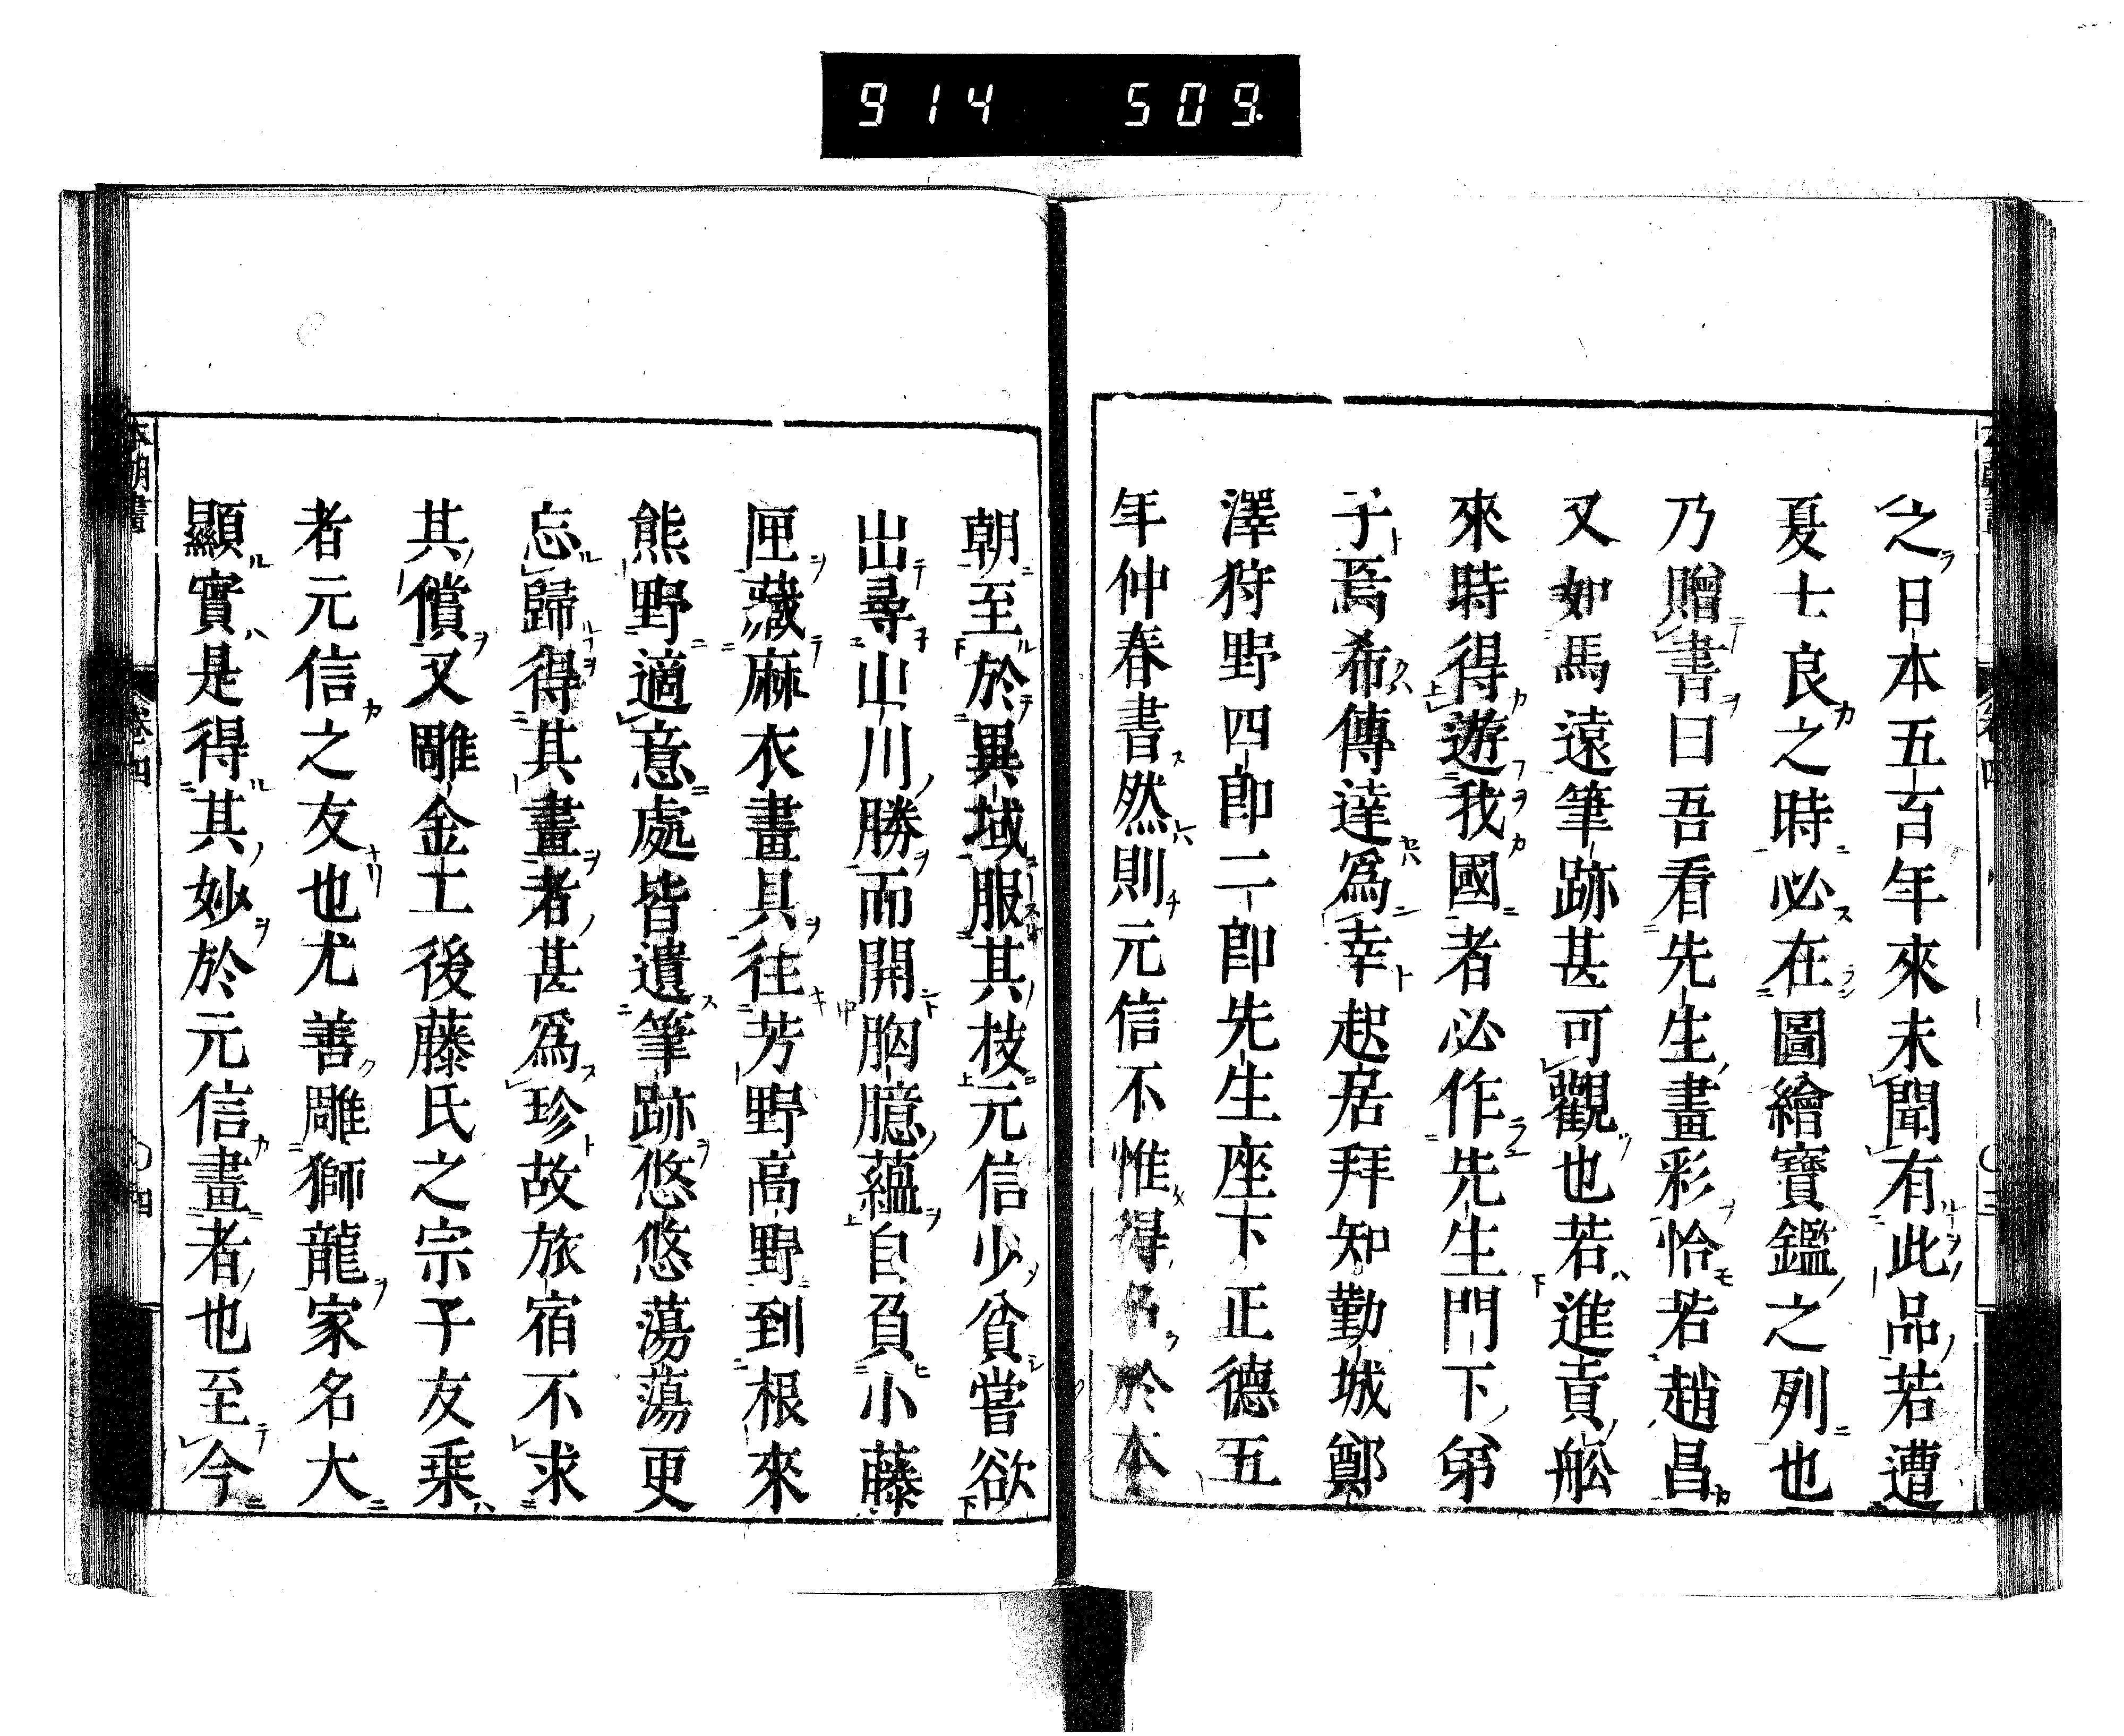 914 509.
之日本五百年來未聞有此品若遭
夏士良之時必在圖繪寶鑑之列也
乃贈書曰吾看先生畫彩恰若趙昌
又如馬遠筆跡甚可觀也若進貢舩
來時得遊我國者必作先生門下弟
子焉希傳達爲幸起居拜知勤城鄭
澤狩野四郎二郎先生座下正德五
年仲春書然則元信不惟得名於本
朝至於異域服其技元信少貧嘗欲
出尋山川勝而開胸臆蘊自負小藤
匣藏麻衣畫具往芳野高野到根來
熊野適意處皆遺筆跡悠悠蕩蕩更
忘歸得其畫者甚爲珍故旅宿不求
其償又雕金工後藤氏之宗子友乘
者元信之友也尤善雕獅龍家名大
顯實是得其妙於元信畫者也至今
本朝畫 卷四 四